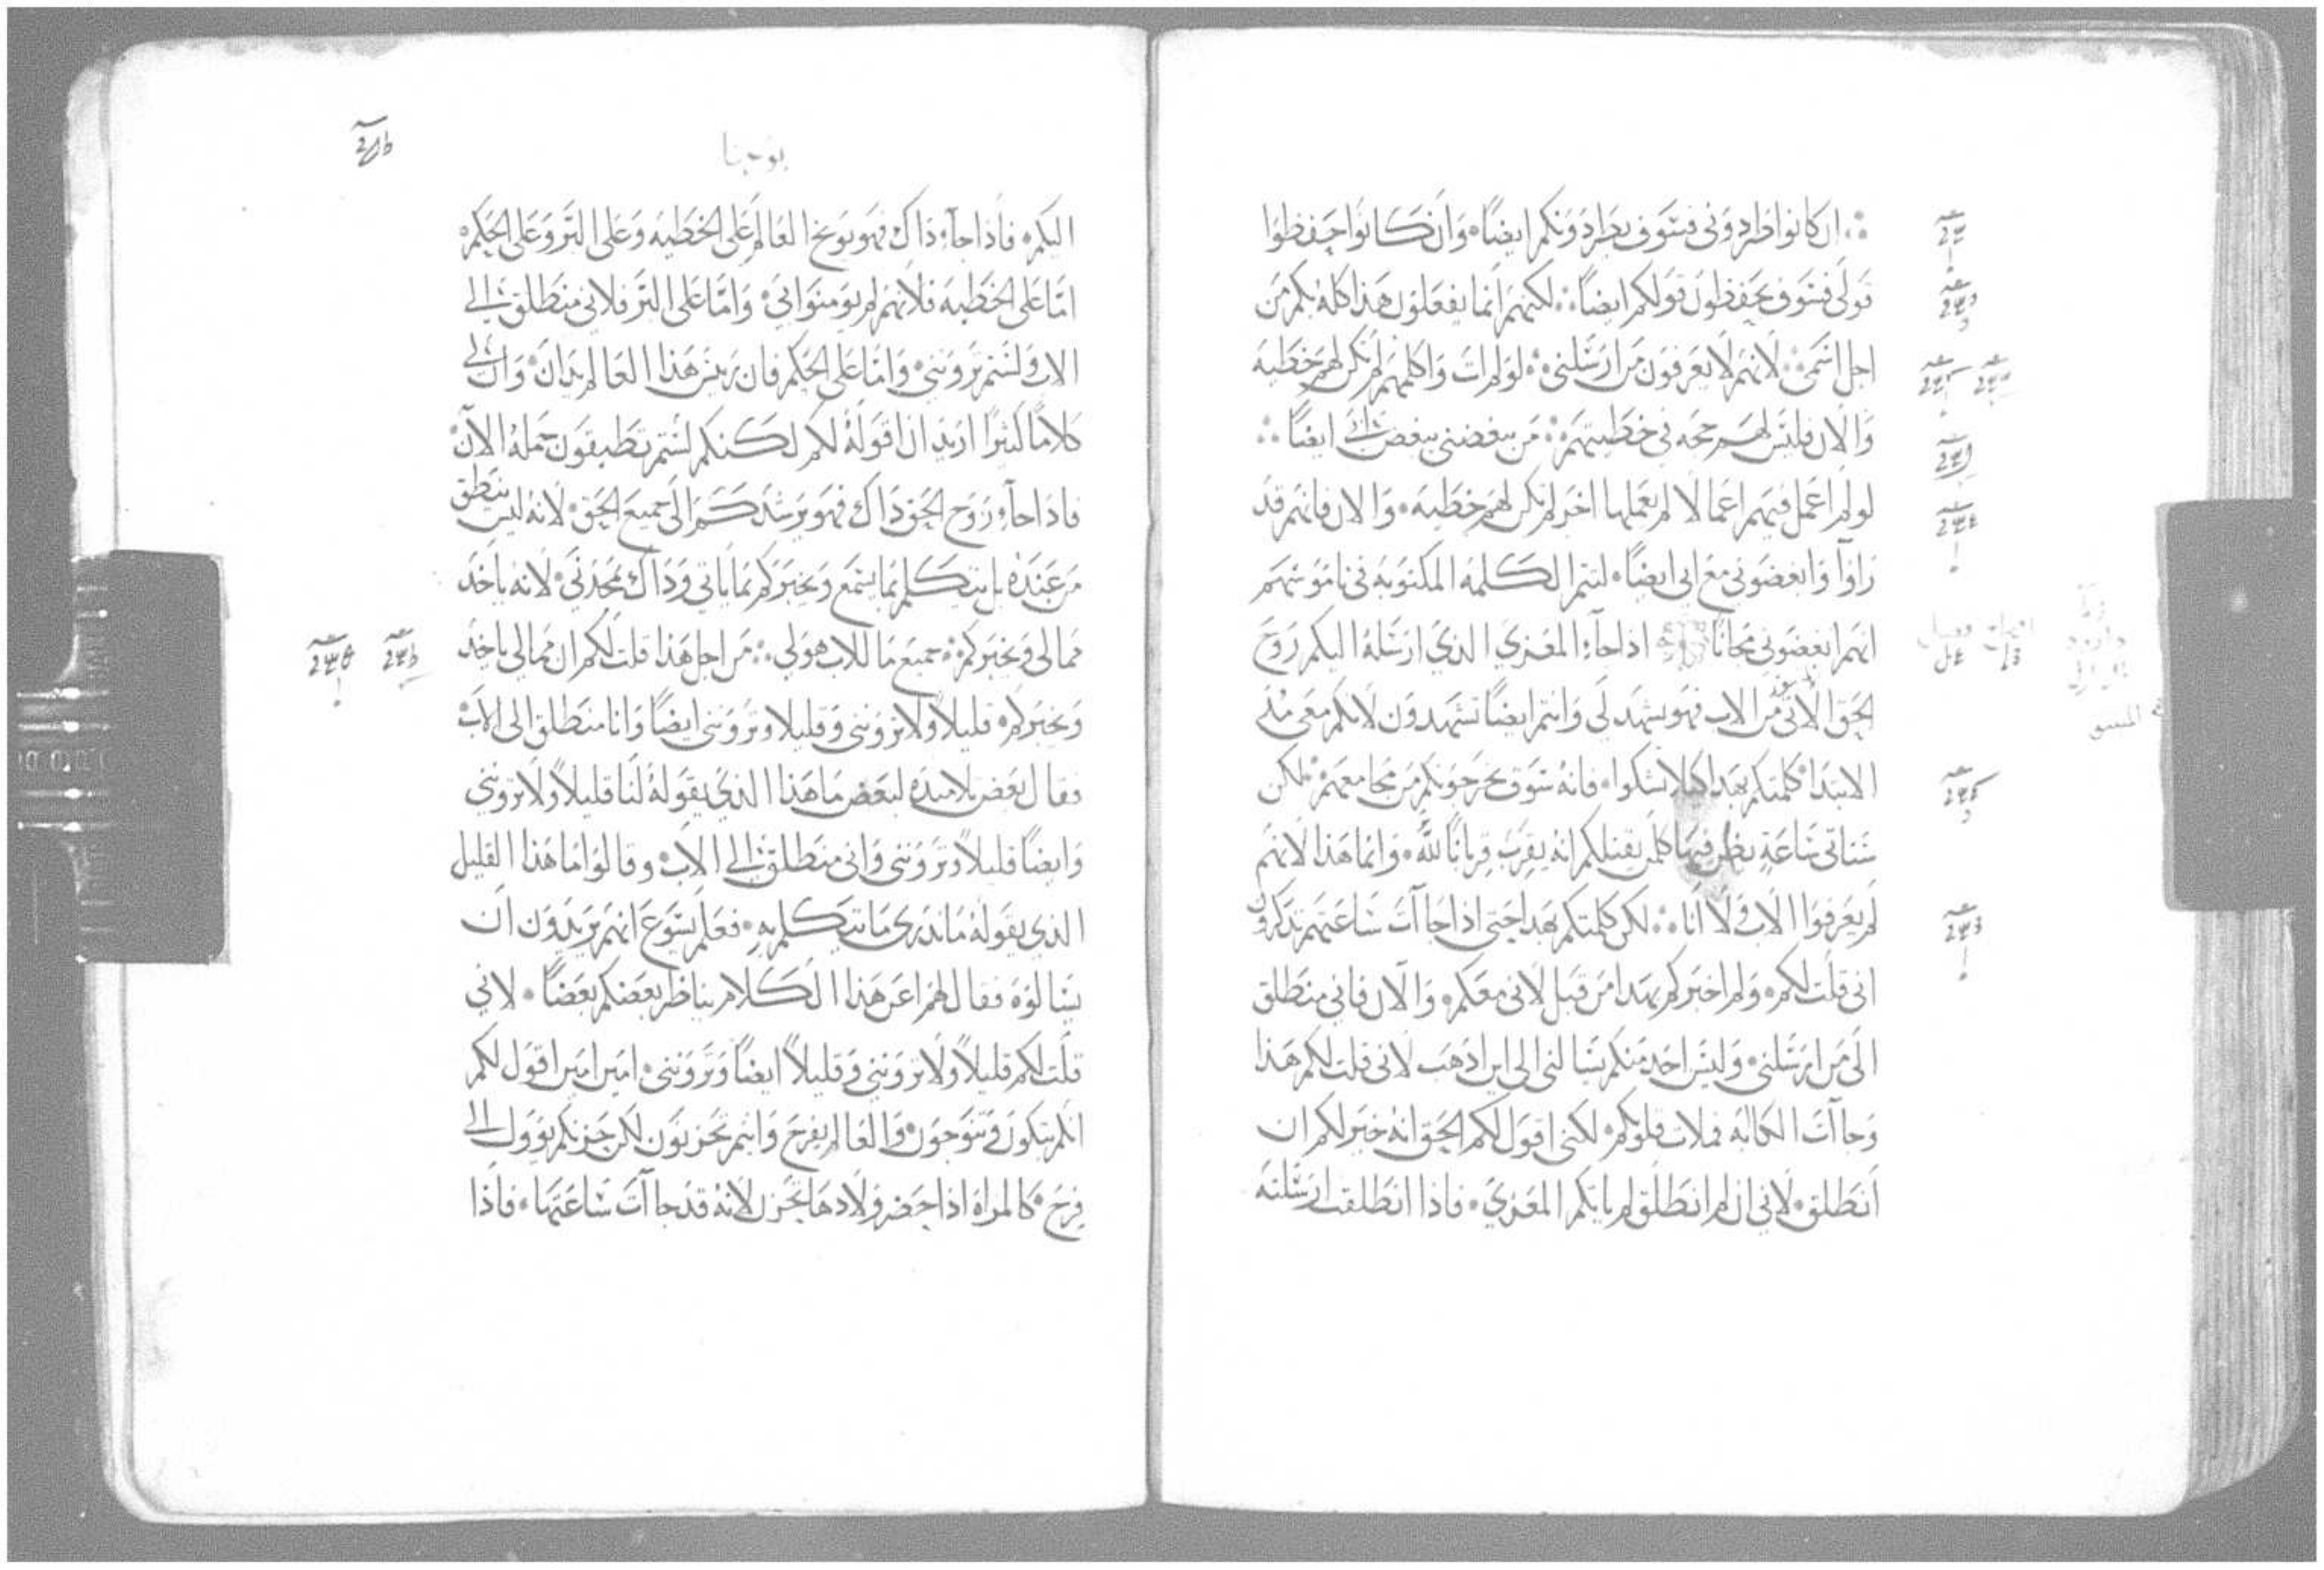 ان كانوا طردوني فسوف يطردونكم ايضًا وان كانوا حفظوا
قولى فسوف يحفظون قولكم ايضًا لكنهم انما يفعلون هذا كله بكم من
اجل اسمى لانهم لا يعرفون من ارسلنى لو لم ات واكلمهم لم تكن لهم خطيه
والان فليس لهم حجه في خطيتهم من يبغضنى يبغض ابى ايضًا
لو لم اعمل فيهم اعمالا لم يعملها اخر لم تكن لهم خطيه والان فانهم قد
راوا وابغضوني مع ابي ايضًا لتتم الكلمه المكتوبه في ناموسهم
انهم ابغضوني مجانًا اذا جاء المعزي الذي ارسله اليكم روح
الحق الاتى من الاب فهو يشهد لى وانتم ايضًا تشهدون لانكم معى منذ
الابتدا كلمتكم بهذا كيلا تشكوا فانه سوف يخرجونكم من مجامعهم لكن
ستاتى ساعة يظن فيها كلمن يقتلكم انه يقرب قربانًا لله وانما هذا لانهم
لم يعرفوا الاب ولا انا لكن كلمتكم بهذا حتى اذا جاات ساعتهم تذكرون
انى قلت لكم ولم اخبركم بهذا من قبل لانى معكم والان فاني منطلق
الى من ارسلنى وليس احد منكم يسالنى الى اين اذهب لانى قلت لكم هذا
وجاات الكابه فملات قلوبكم لكنى اقول لكم الحق انه خير لكم ان
انطلق لاني ان لم انطلق لم ياتكم المعزي فاذا انطلقت ارسلته
يوحنا
اليكم فاذا جاء ذاك فهو يوبخ العالم على الخطيه وعلى البر وعلى الحكم
امّا على الخطيه فلانهم لم يومنوا بي وامّا على البر فلانى منطلق الى
الاب ولستم تروننى وامّا على الحكم فان ريس هذا العالم يدان وان لى
كلامًا كثيرًا اريد ان اقوله لكم لكنكم لستم تطيقون حمله الان
فاذا جاء روح الحق ذاك فهو يرشدكم الى جميع الحق لانه ليس ينطق
من عنده بل يتكلم بما يسمع ويخبركم بما ياتى وذاك يمجدني لانه ياخذ
مما لى ويخبركم جميع ما للاب هو لي من اجل هذا قلت لكم ان مما لي ياخذ
ويخبركم قليلاً ولا تروننى وقليلا وتروننى ايضًا وانا منطلق الى الاب
فقال بعض تلاميذه لبعض ما هذا الذي يقوله لنا قليلاً ولا تروننى
وايضًا قليلاً وتروننى وانى منطلق الى الاب وقالوا ما هذا القليل
الذي يقوله ما ندرى ما يتكلم به فعلم يسوع انهم يريدون ان
يسالوه فقال لهم اعن هذا الكلام يناظر بعضكم بعضًا لاني
قلت لكم قليلاً ولا تروننى وقليلاً ايضًا وتروننى امين امين اقول لكم
انكم تبكون وتنوحون والعالم يفرح وانتم تحزنون لكن حزنكم يوول الى
فرح كالمراه اذا حضر ولادها تحزن لانه قد جاات ساعتها فاذا